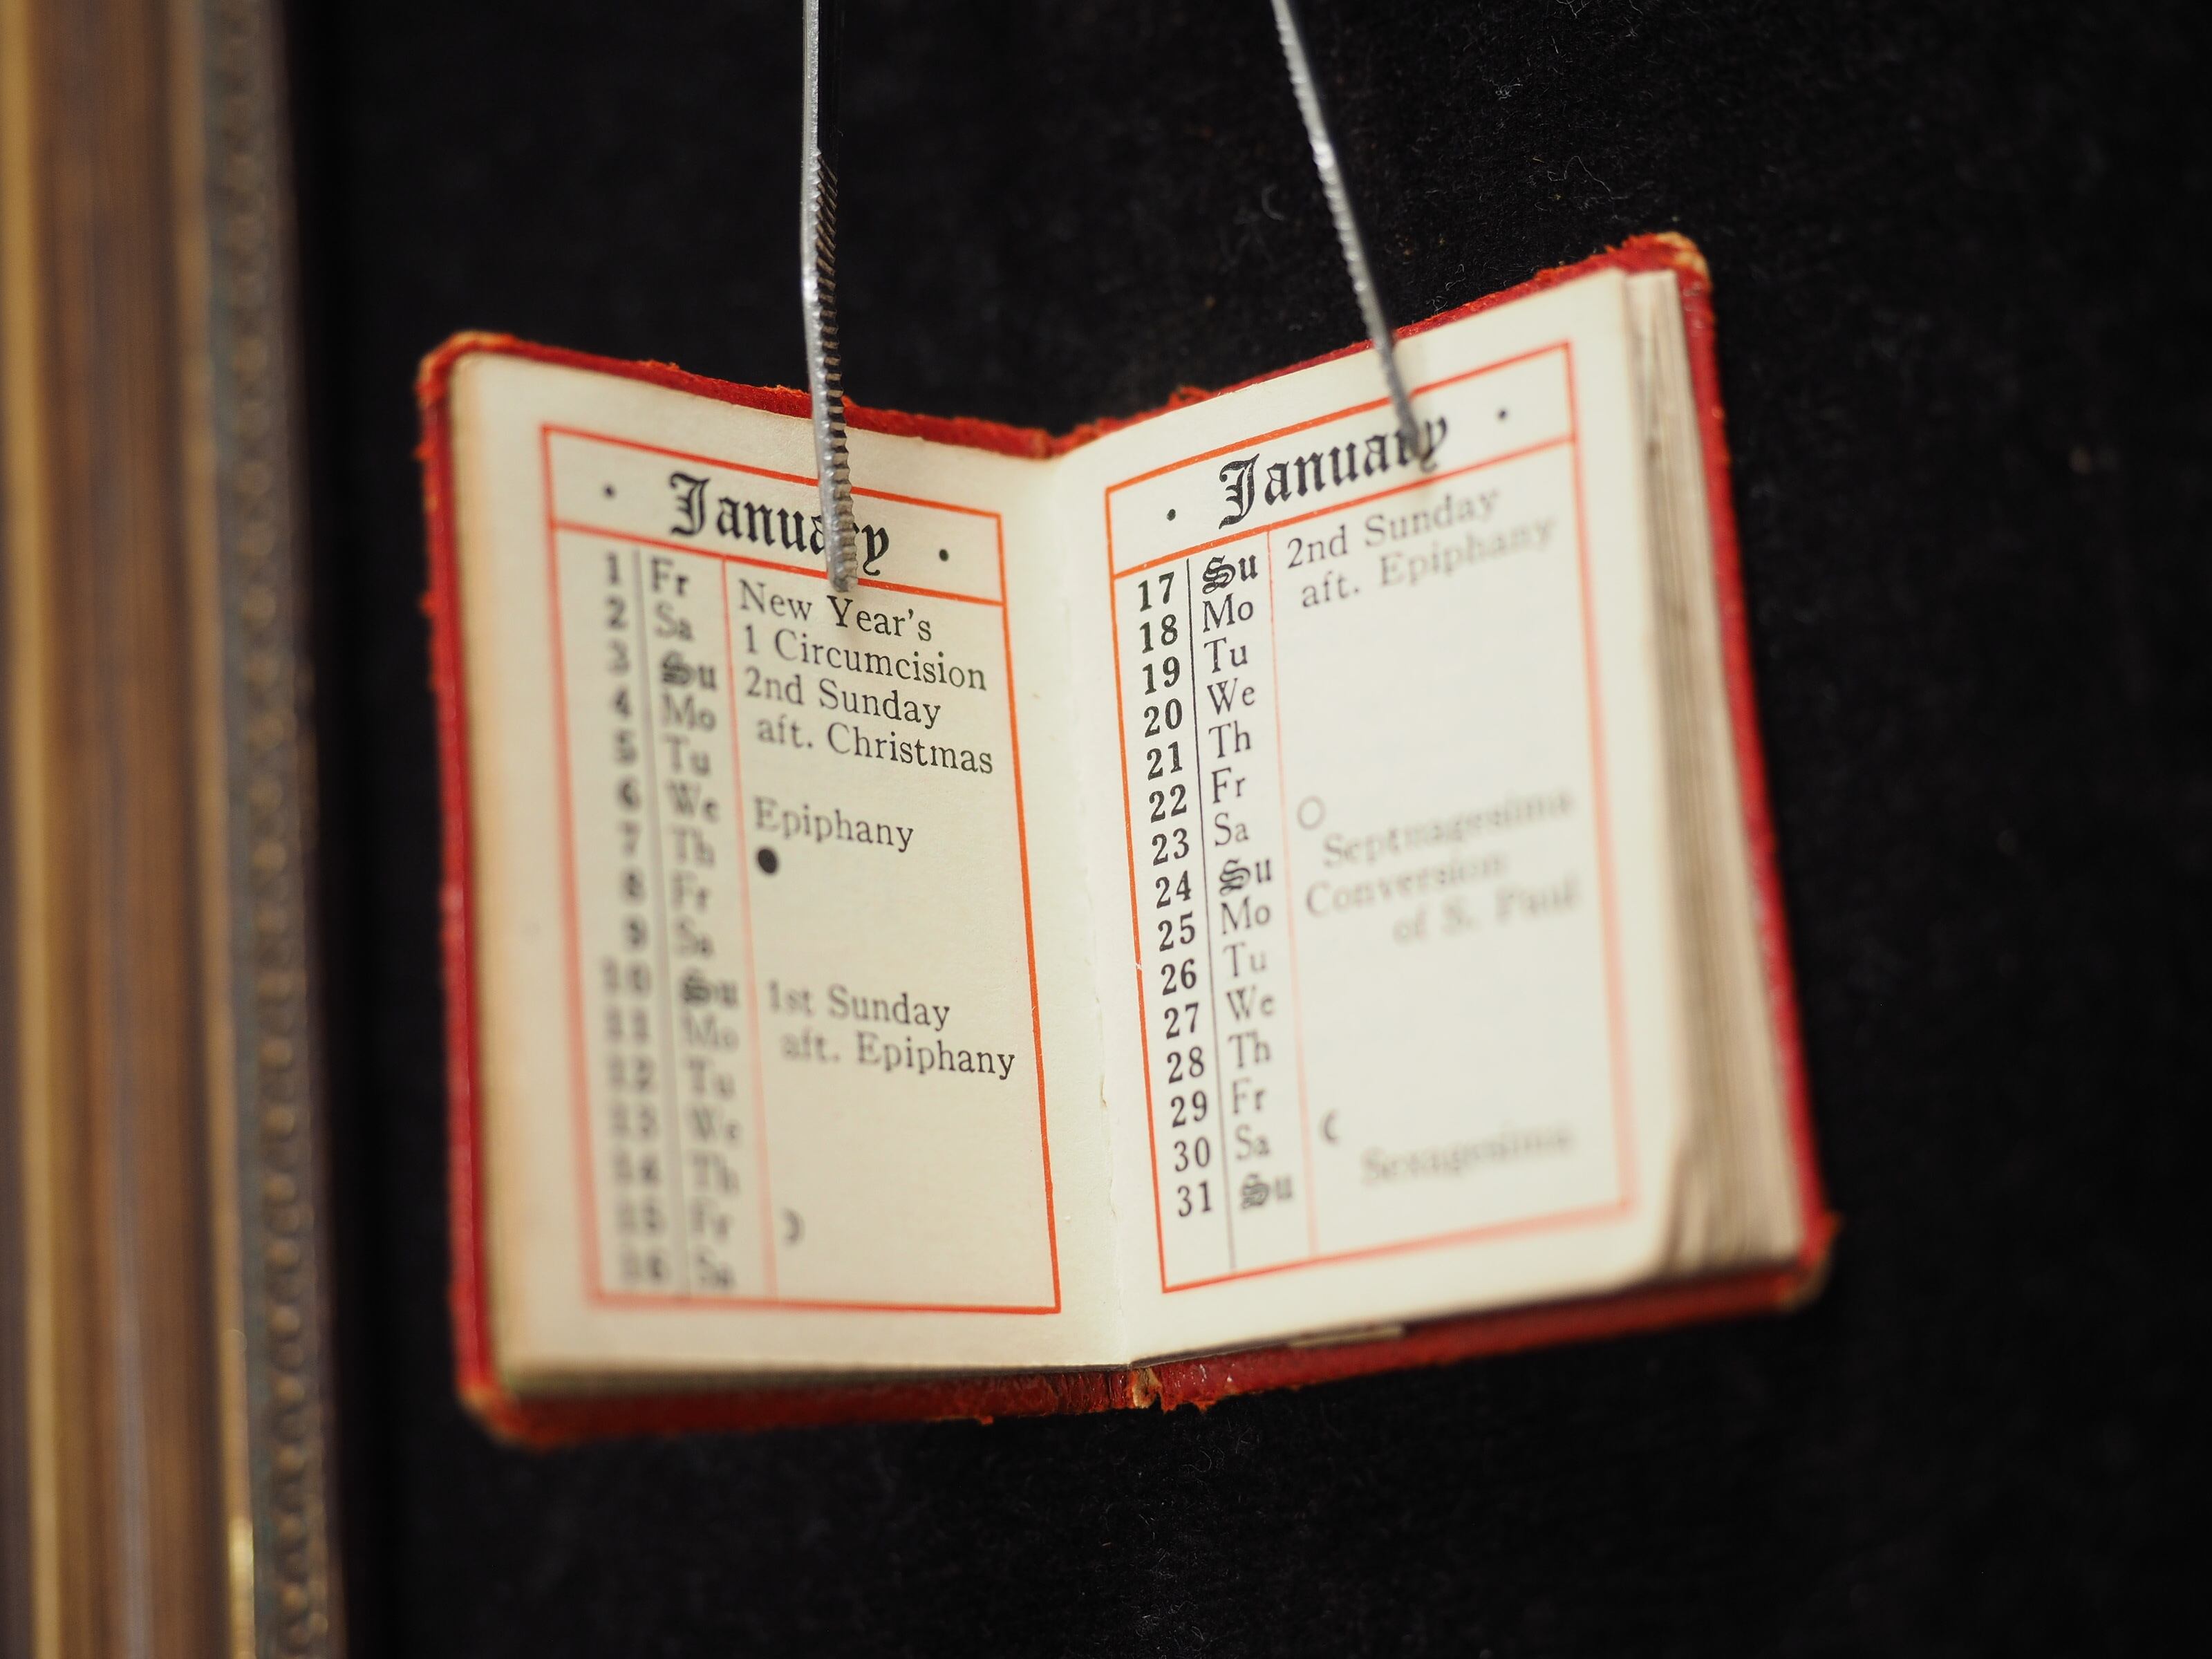 · January ·
1 Fr New Year's
2 Sa 1 Circumcision
3 Su 2nd Sunday
4 Mo aft. Christmas
5 Tu
6 We Epiphany
7 Th ●
8 Fr
9 Sa
10 Su 1st Sunday
11 Mo aft. Epiphany
12 Tu
13 We
14 Th
15 Fr ☽
16 Sa
· January ·
17 Su 2nd Sunday
18 Mo aft. Epiphany
19 Tu
20 We
21 Th
22 Fr
23 Sa ○
24 Su Septuagesima
25 Mo Conversion
26 Tu of S. Paul
27 We
28 Th
29 Fr
30 Sa ☾
31 Su Sexagesima